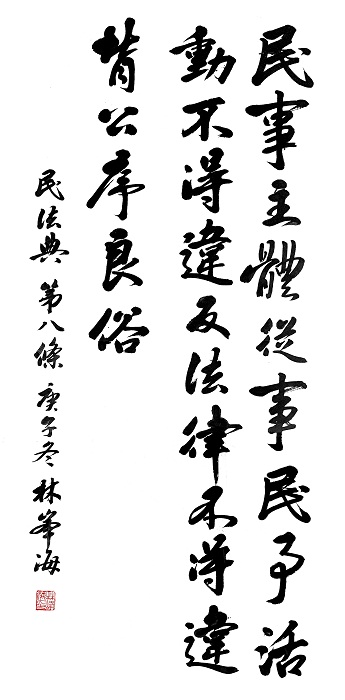 民事主體從事民事活
動不得違反法律不得違
背公序良俗
民法典 第八條 庚子冬 林峰海